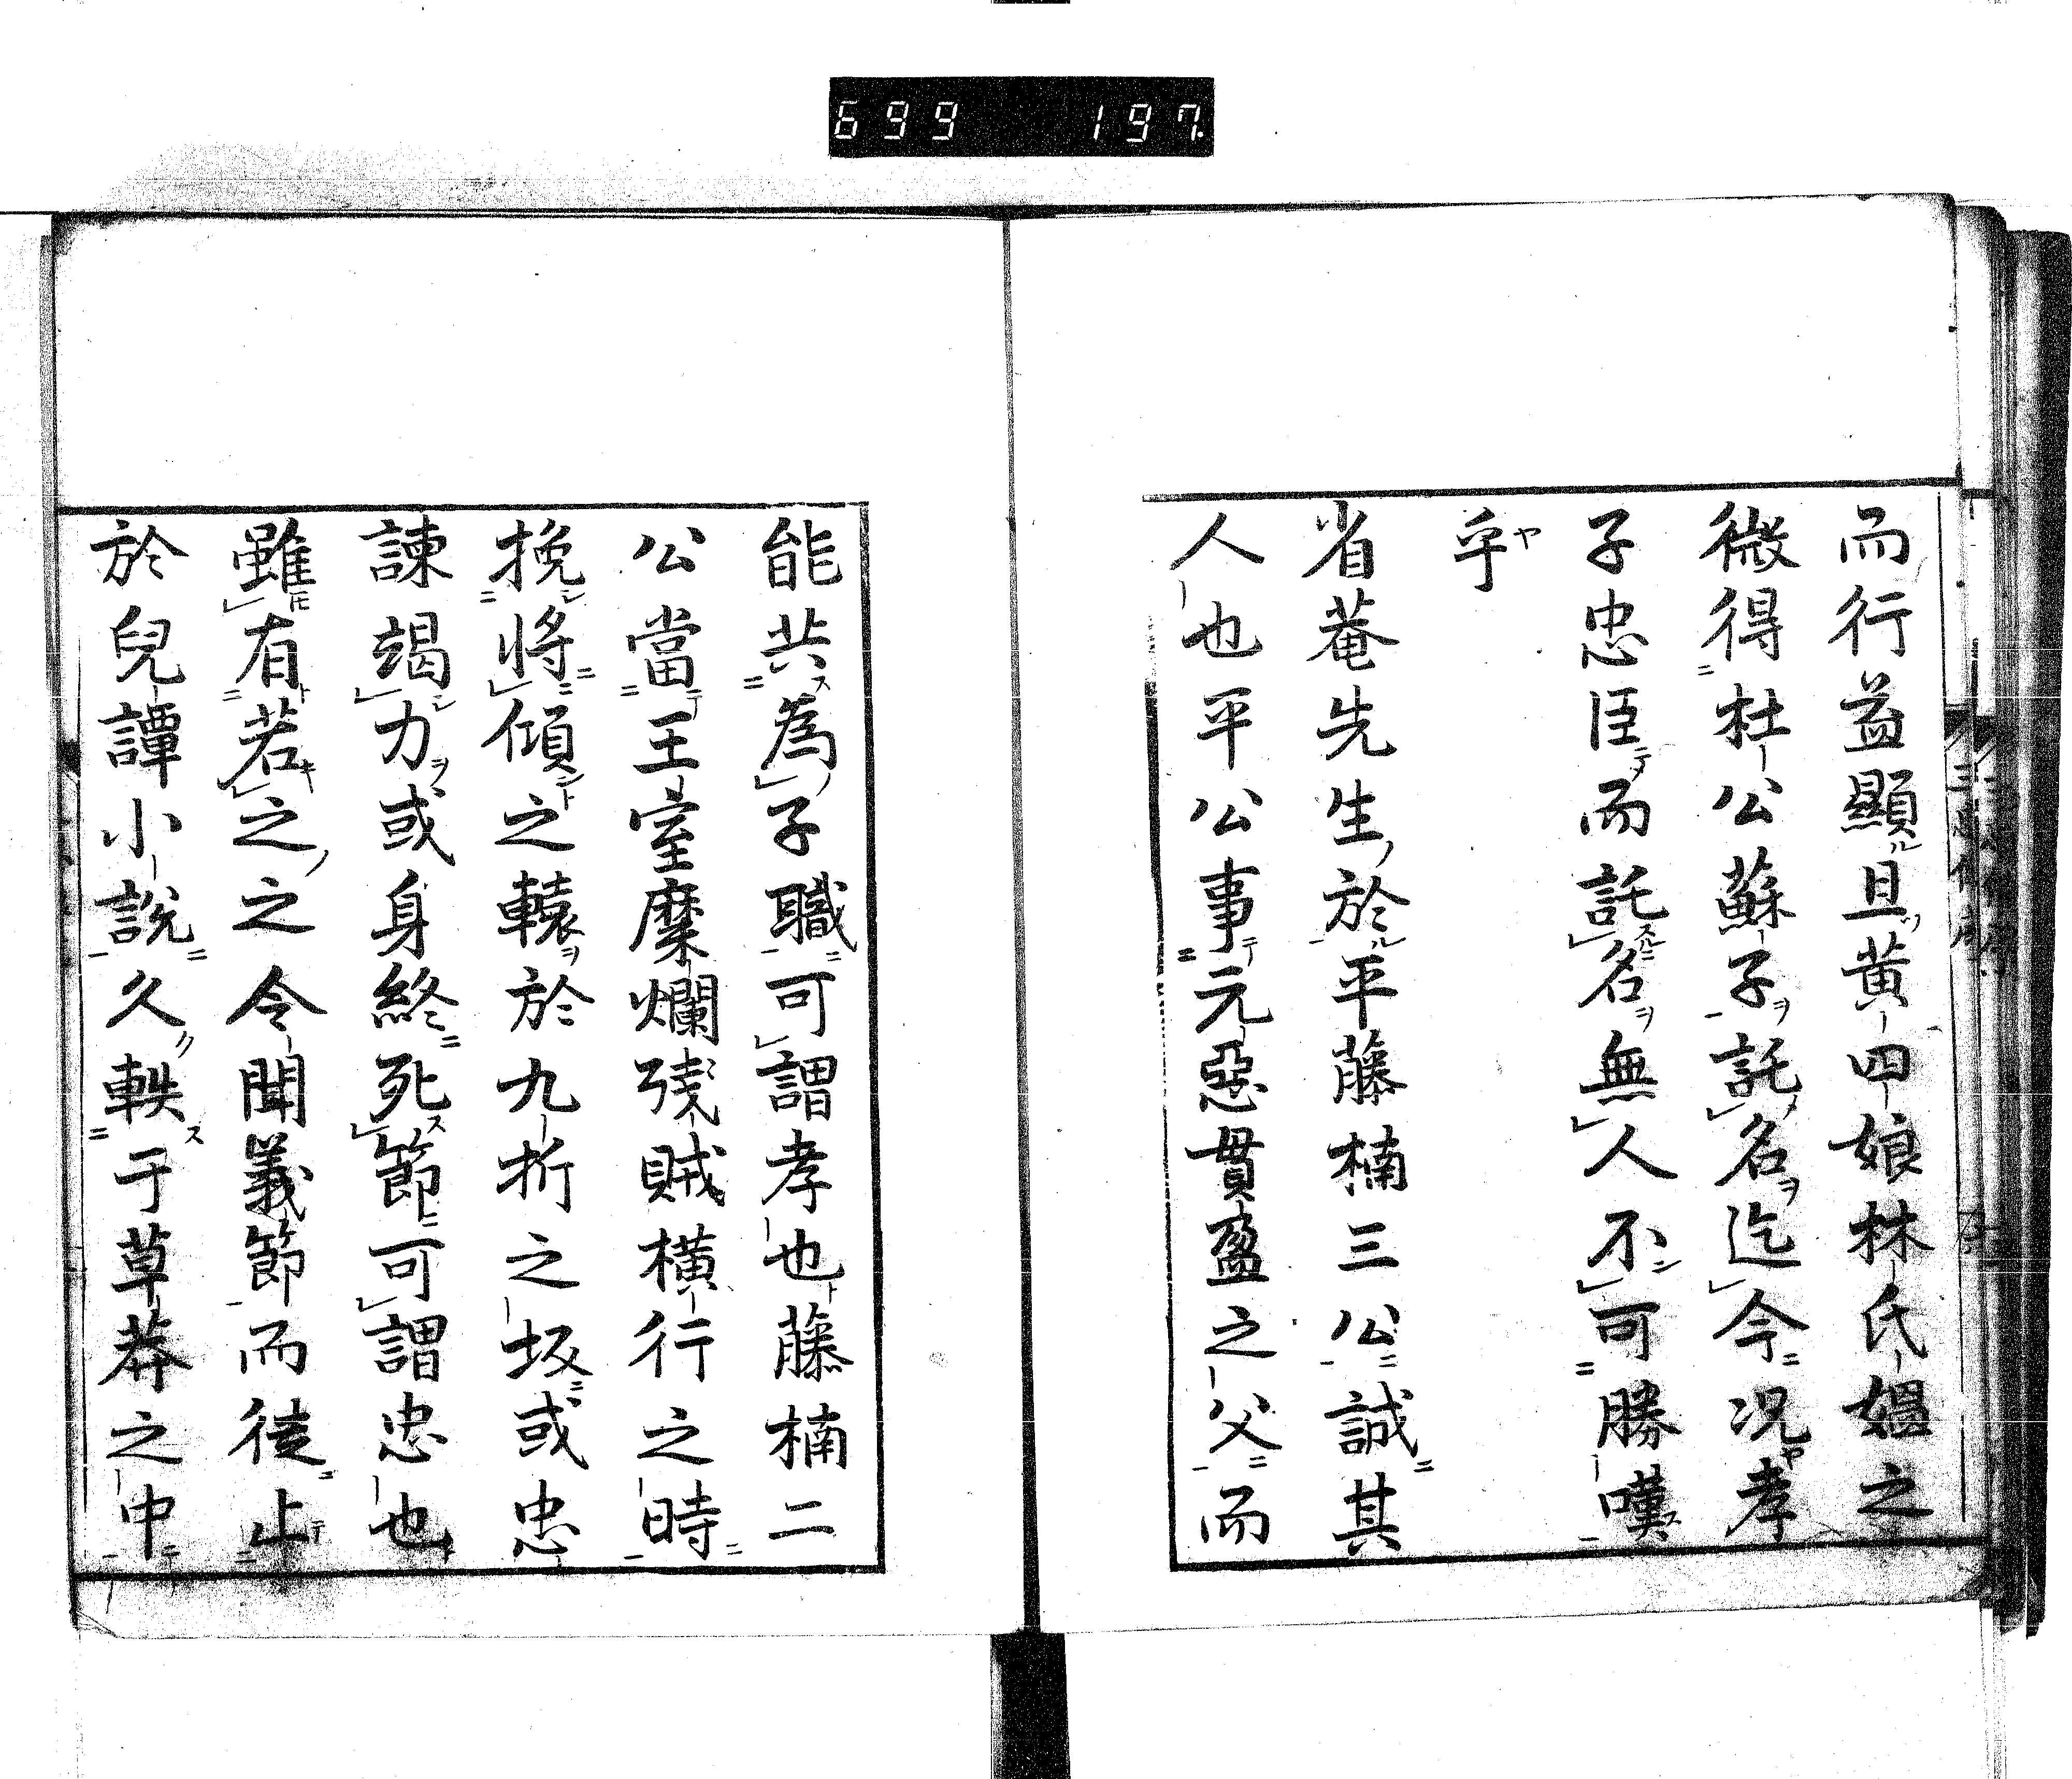 699 197
而行益顯且黃四娘林氏媼之
微得杜公蘇子託名迄今況孝
子忠臣而託名無人不可勝嘆
乎
省菴先生於平藤楠三公誠其
人也平公事元惡貫盈之父而
能共為子職可謂孝也藤楠二
公當王室糜爛殘賊橫行之時
挽將傾之轅於九折之坂或忠
諫竭力或身終死節可謂忠也
雖有若之之令聞義節而徒止
於兒譚小說久軼于草莽之中